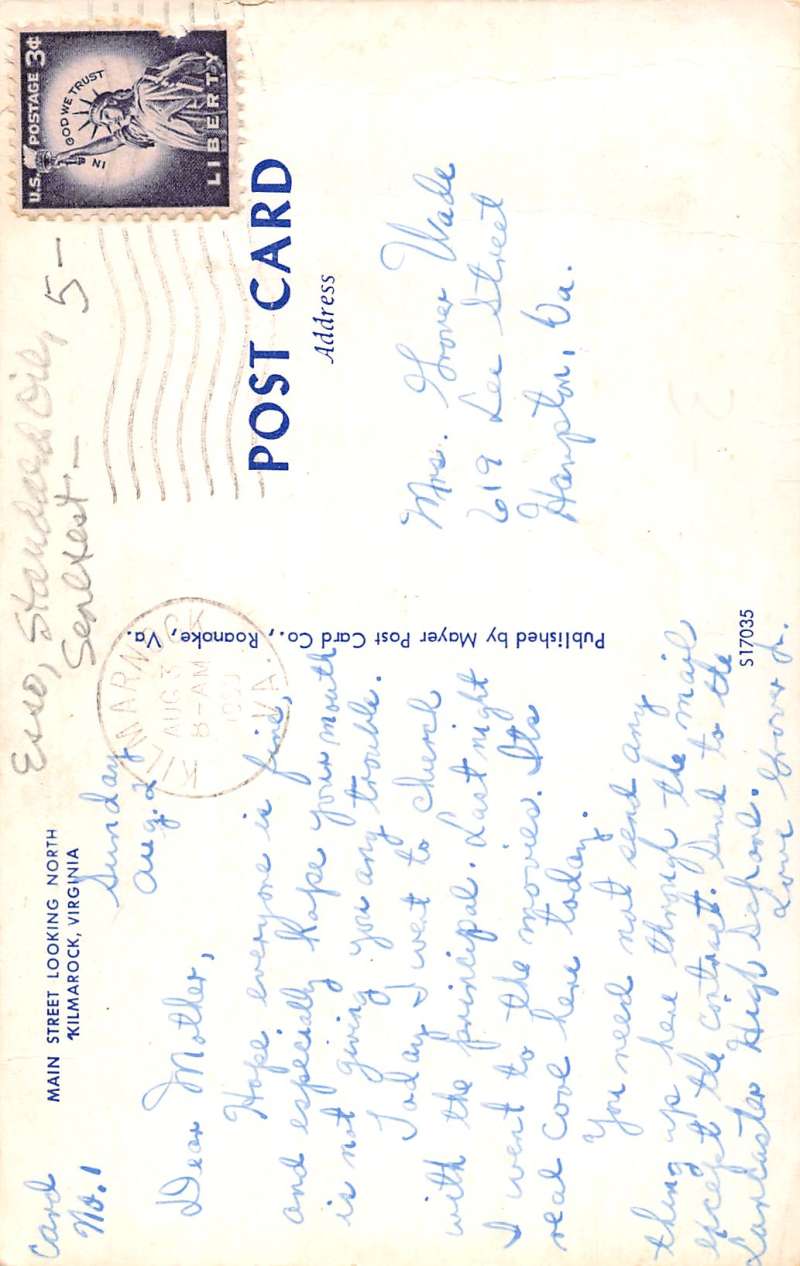 Card
No. 1
MAIN STREET LOOKING NORTH
KILMAROCK, VIRGINIA
Esso, Standard Oil, 5 –
Sealtest –
Sunday
Aug. 2
Dear Mother,
Hope everyone is fine,
and especially hope your mouth
is not giving you any trouble.
Today I went to church
with the principal. Last night
I went to the movies. Its
real cool here today.
You need not send any
thing up here through the mail
except the contract. Send to the
Lancaster High School.
Love Grover Jr.
Published by Mayer Post Card Co., Roanoke, Va.
S17035
KILMARNOCK
AUG 3
8-AM
VA.
U.S. POSTAGE 3¢
IN GOD WE TRUST
LIBERTY
POST CARD
Address
Mrs. Grover Wade
619 Lee Street
Hampton, Va.